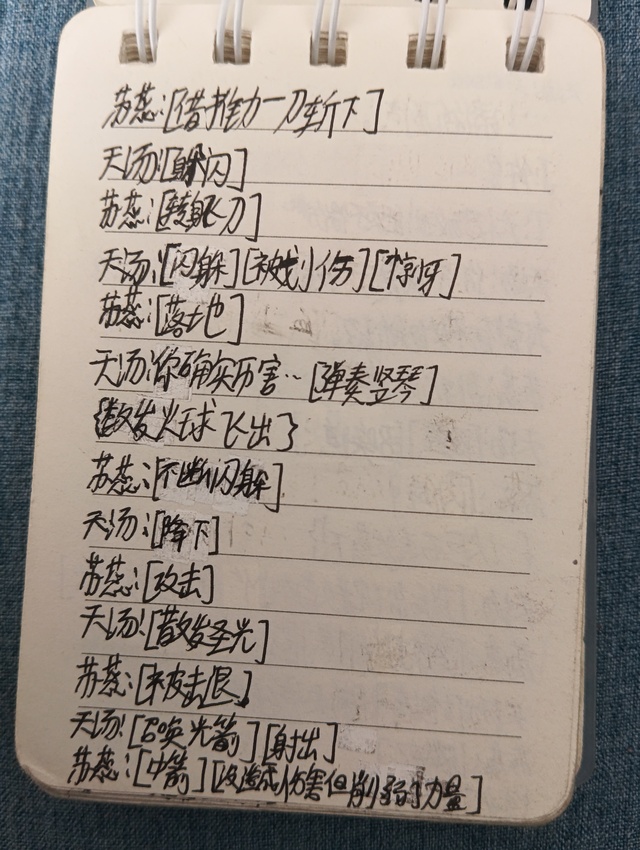 苏蕊:[借推力一刀斩下]
天汤:[躲闪]
苏蕊:[转身飞刀]
天汤:[闪躲][被划伤][惊讶]
苏蕊:[落地]
天汤:你确实厉害··[弹奏竖琴]
{数发火球飞出}
苏蕊:[不断闪躲]
天汤:[降下]
苏蕊:[攻击]
天汤:[散发圣光]
苏蕊:[被击退]
天汤:[召唤光箭][射出]
苏蕊:[中箭][没造成伤害但削弱了力量]